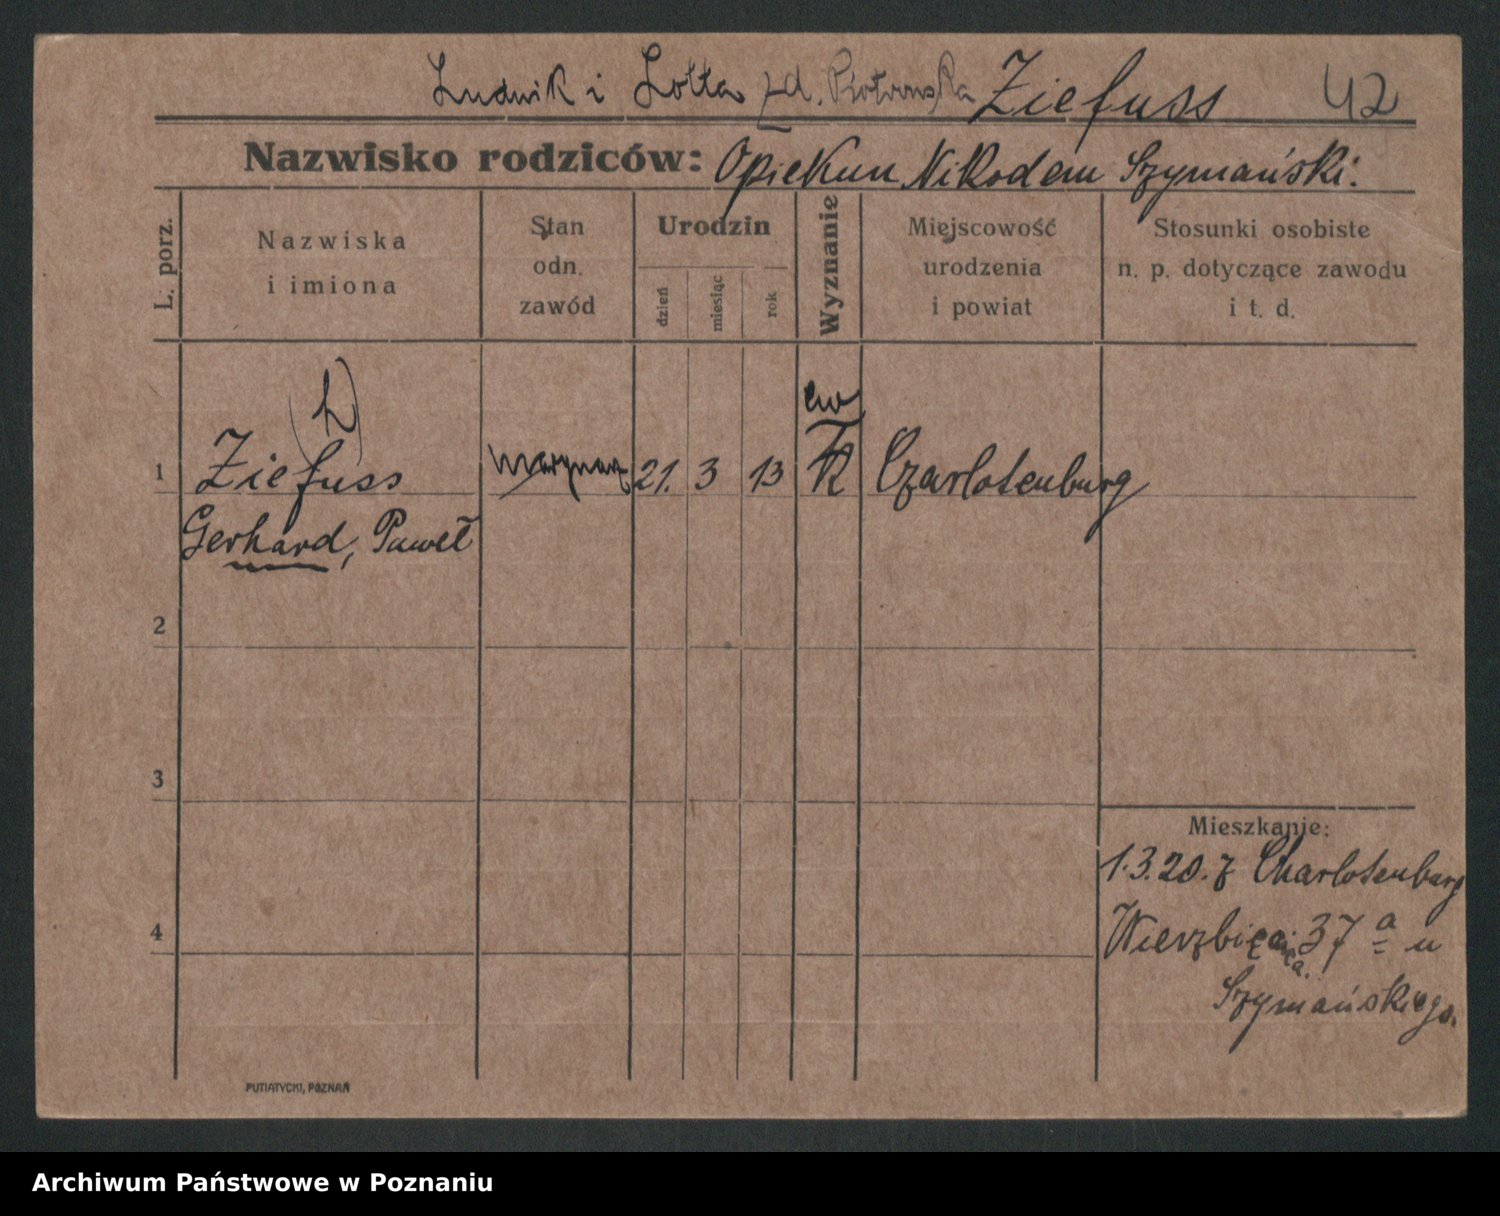 Ludwik i Lotta zd. Piotrowska Ziefuss 42
Nazwisko rodziców: Opiekun Nikodem Szymański.
L. porz.
Nazwiska
i imiona
Stan
odn.
zawód
Urodzin
dzień
miesiąc
rok
Wyznanie
Miejscowość
urodzenia
i powiat
Stosunki osobiste
n. p. dotyczące zawodu
i t. d.
ew
1 Ziefuss marynarz 21. 3 13 Czarlotenburg
Gerhard, Paweł
2
3
4
Mieszkanie:
1.3.20. z Charlotenburg
37 a u
Szymańskiego.
PUTIATYCKI, POZNAŃ
Archiwum Państwowe w Poznaniu